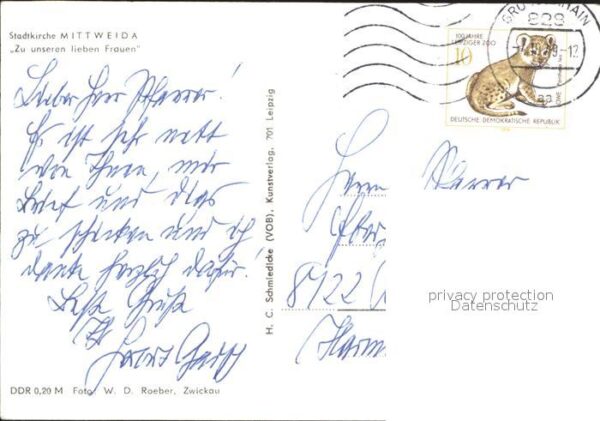 Stadtkirche MITTWEIDA
„Zu unseren lieben Frauen"
Lieber Herr Pfarrer!
Es ist sehr nett
von Ihnen, mir
Brief und Dias
zu schicken und ich
danke herzlich dafür!
Beste Grüße
Ihr
DDR 0,20 M Foto: W. D. Roeber, Zwickau
H. C. Schmiedicke (VOB), Kunstverlag, 701 Leipzig
828
100 JAHRE
LEIPZIGER ZOO
10
DEUTSCHE DEMOKRATISCHE REPUBLIK
Herrn Pfarrer
privacy protection
Datenschutz